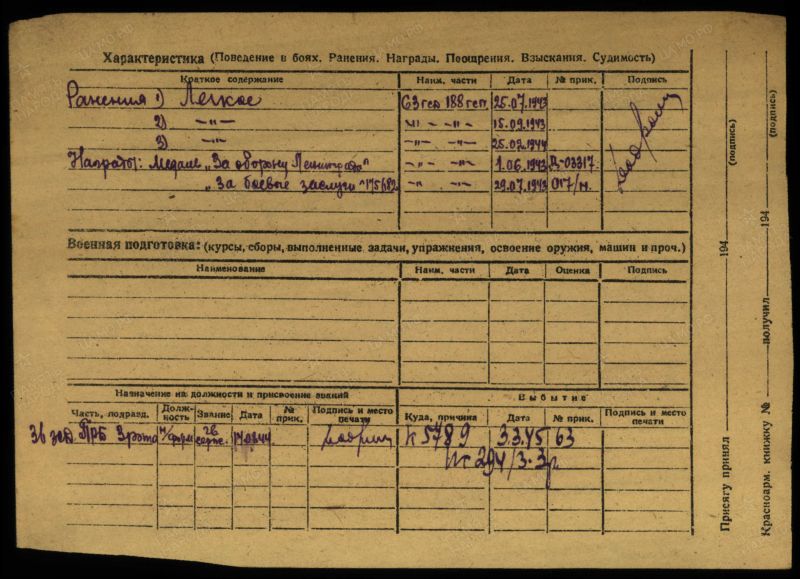 Характеристика (Поведение в боях. Ранения. Награды. Поощрения. Взыскания. Судимость)
Краткое содержание Наим. части Дата № прик. Подпись
Ранения 1) Легкое 63 гсд 188 гсп 25.07.1943
2) —"— —"— 15.09.1943
3) —"— —"— —"— 25.02.1944
Награды: Медаль „За оборону Ленинграда" —"— —"— 1.06.1943 Д-03317
„За боевые заслуги" 175682 —"— —"— 29.07.1943 017/н.
Военная подготовка: (курсы, сборы, выполненные задачи, упражнения, освоение оружия, машин и проч.)
Наименование Наим. части Дата Оценка Подпись
Назначение на должности и присвоение званий
Часть, подразд. Должность Звание Дата № прик. Подпись и место печати
36 зсд. 3 рота гв серж.
Выбытие
Куда, причина Дата № прик. Подпись и место печати
К 5789 3.3.45 63
294/3.
Присягу принял 194 (подпись)
Красноарм. книжку № получил 194 (подпись)
ЦАМО.РФ